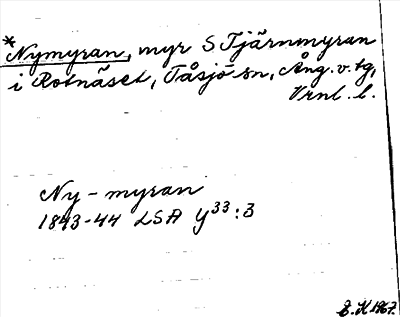 *Nymyran, myr S Tjärnmyran
i Rotnäset, Tåsjö sn, Ång. v. tg,
Vrnl. l.
Ny-myran
1843-44 LSA Y33:3
E. K 1967.